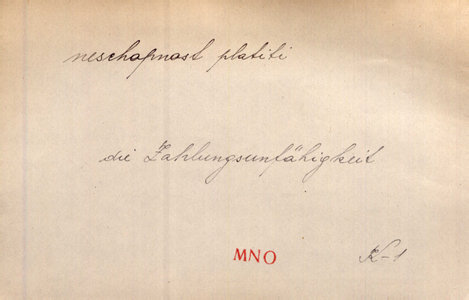 neschopnost platiti
die Zahlungsunfähigkeit
MNO K-1